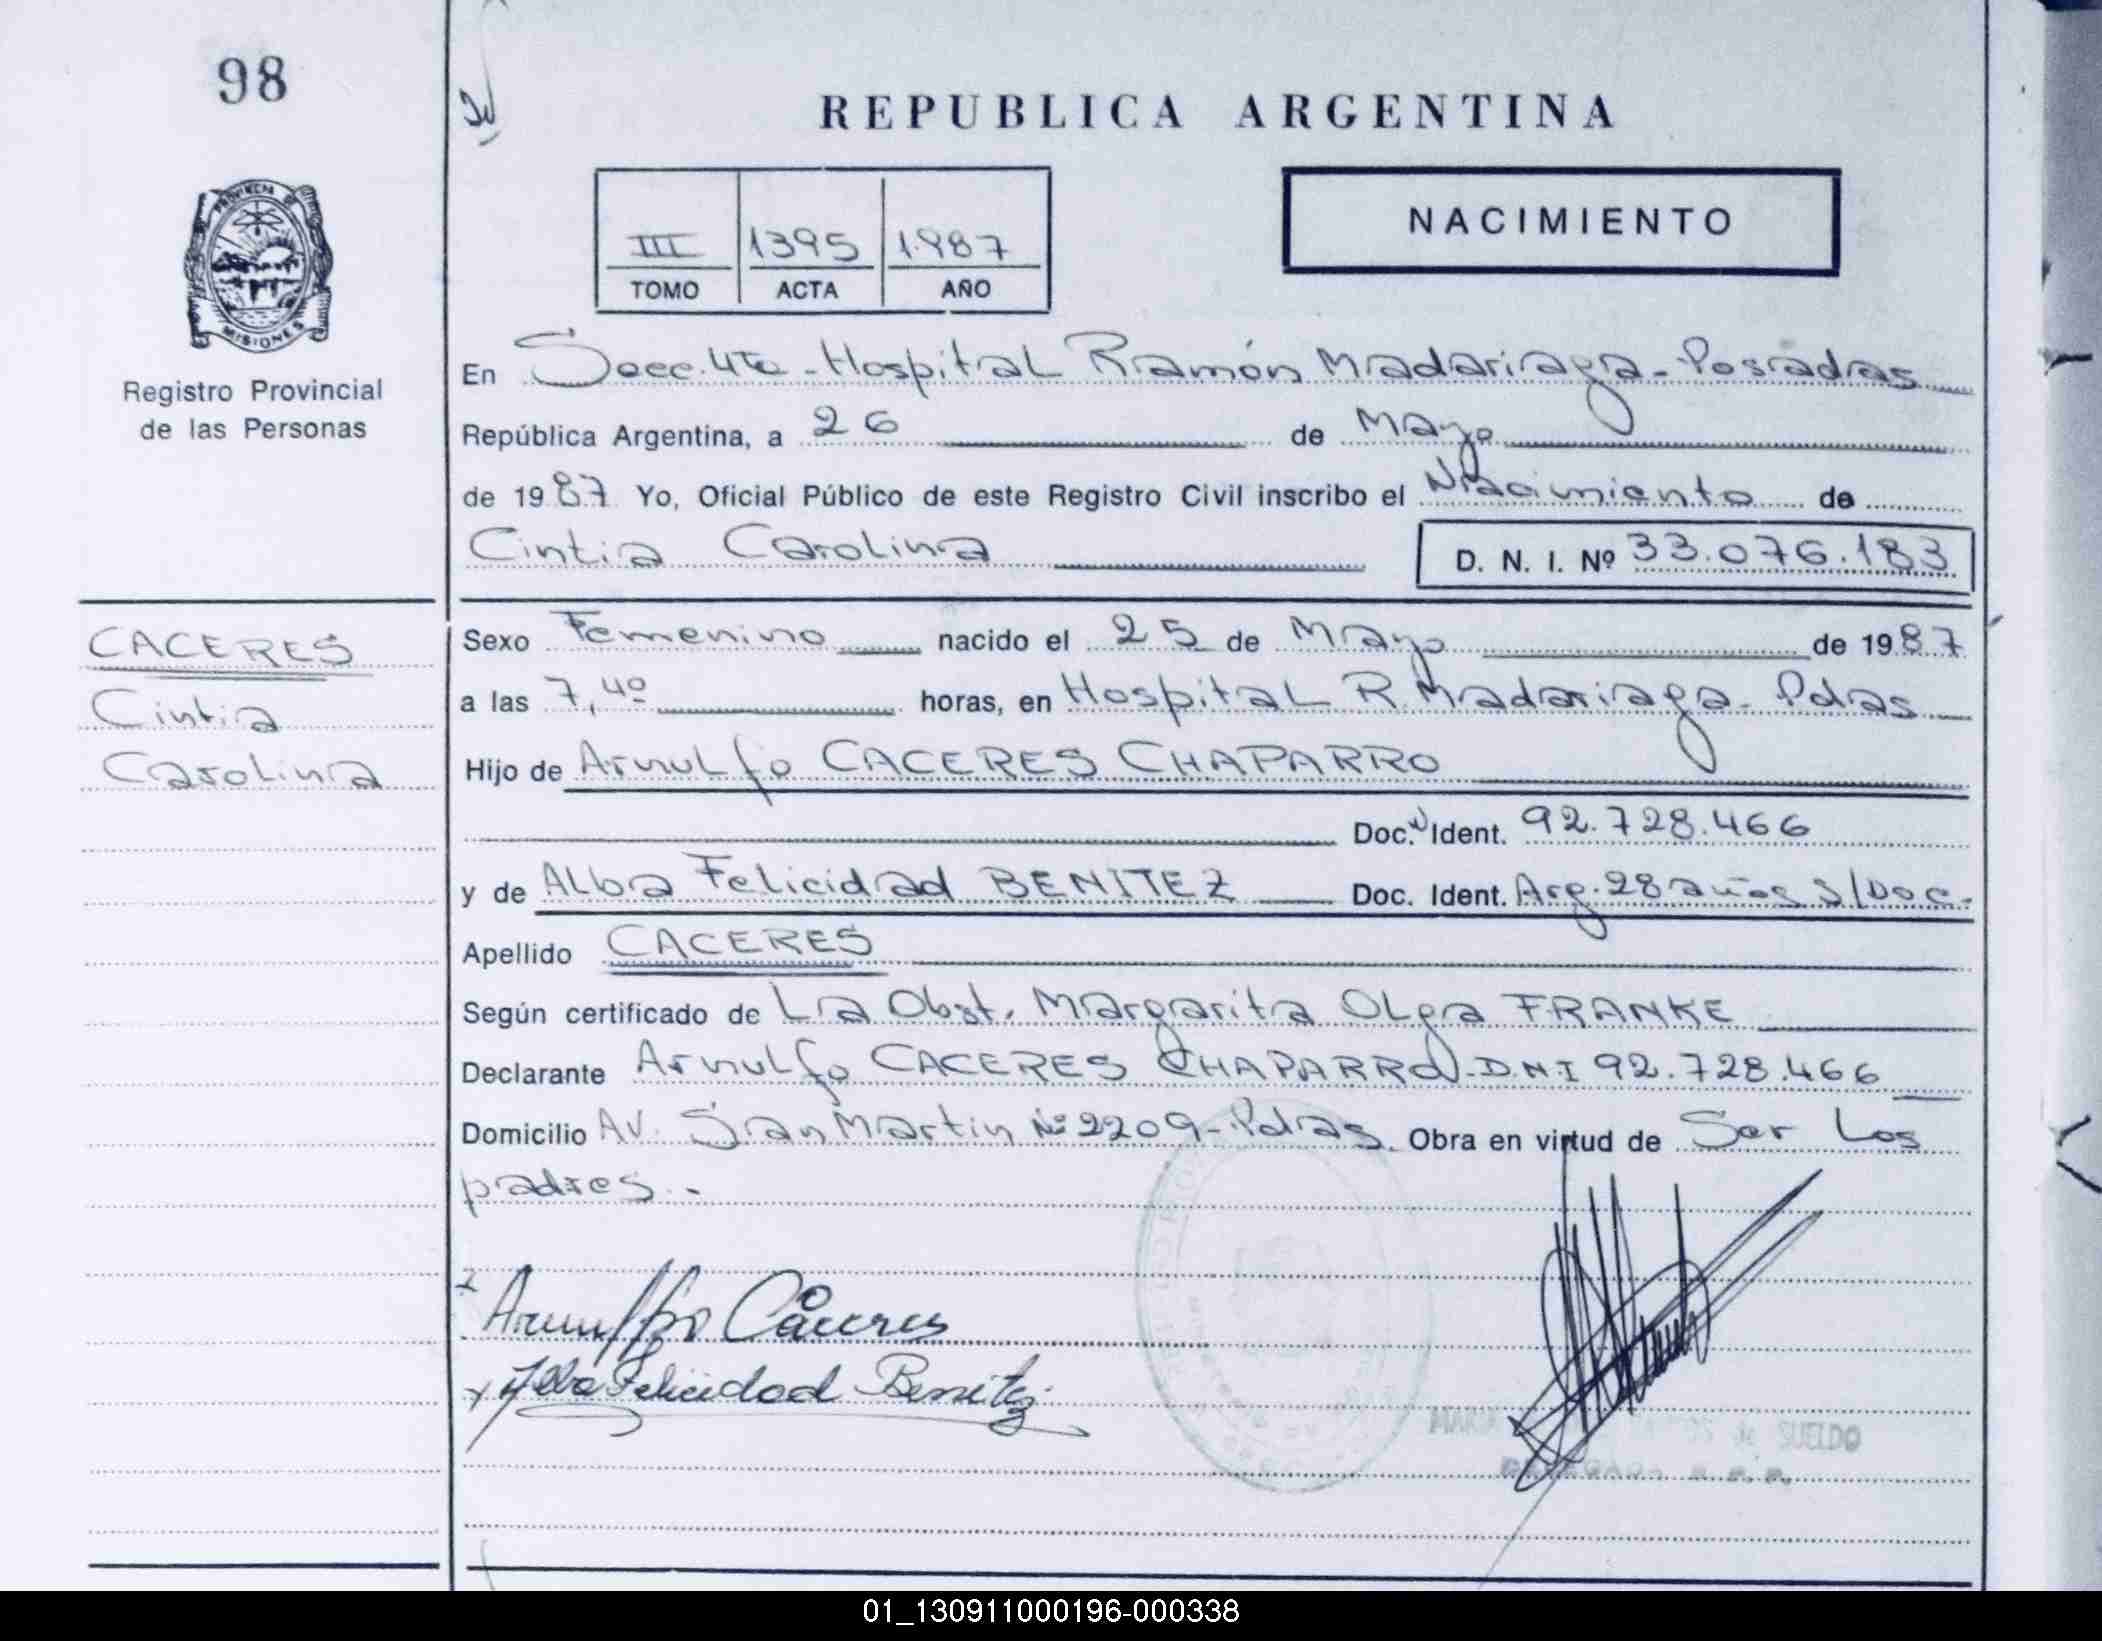 98
REPUBLICA ARGENTINA
III 1395 1987
TOMO ACTA AÑO
NACIMIENTO
PROVINCIA DE
MISIONES
Registro Provincial
de las Personas
En Secc. 4ta - Hospital Ramón Madariaga - Posadas
República Argentina, a 26 de Mayo
de 1987 Yo, Oficial Público de este Registro Civil inscribo el Nacimiento de
Cintia Carolina D. N. I. Nº 33.076.183
CACERES
Cintia
Carolina
Sexo Femenino nacido el 25 de Mayo de 1987
a las 7,40 horas, en Hospital R. Madariaga - Pdas
Hijo de Arnulfo CACERES CHAPARRO
Doc. Ident. 92.728.466
y de Alba Felicidad BENITEZ Doc. Ident. Arg. 28 años S/Doc.
Apellido CACERES
Según certificado de La Obst. Margarita Olga FRANKE
Declarante Arnulfo CACERES CHAPARRO - DNI 92.728.466
Domicilio Av. San Martin Nº 2209 - Pdas. Obra en virtud de Ser Los
padres.-
Arnulfo Cáceres
Alba Felicidad Benitez
MARIA de SUELDO
01_130911000196-000338